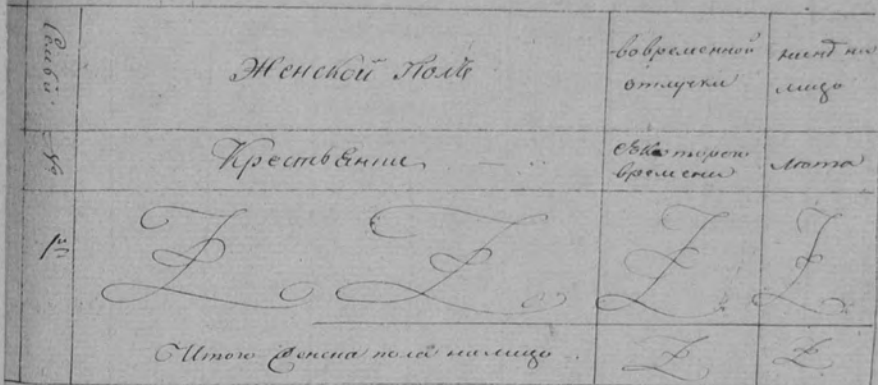 Семьи №
Женской Полъ
во временной
отлучки
нынѣ на
лицо
Крестьянне
Съ которого
времени
лѣта
1й
Итого женска пола на лицо